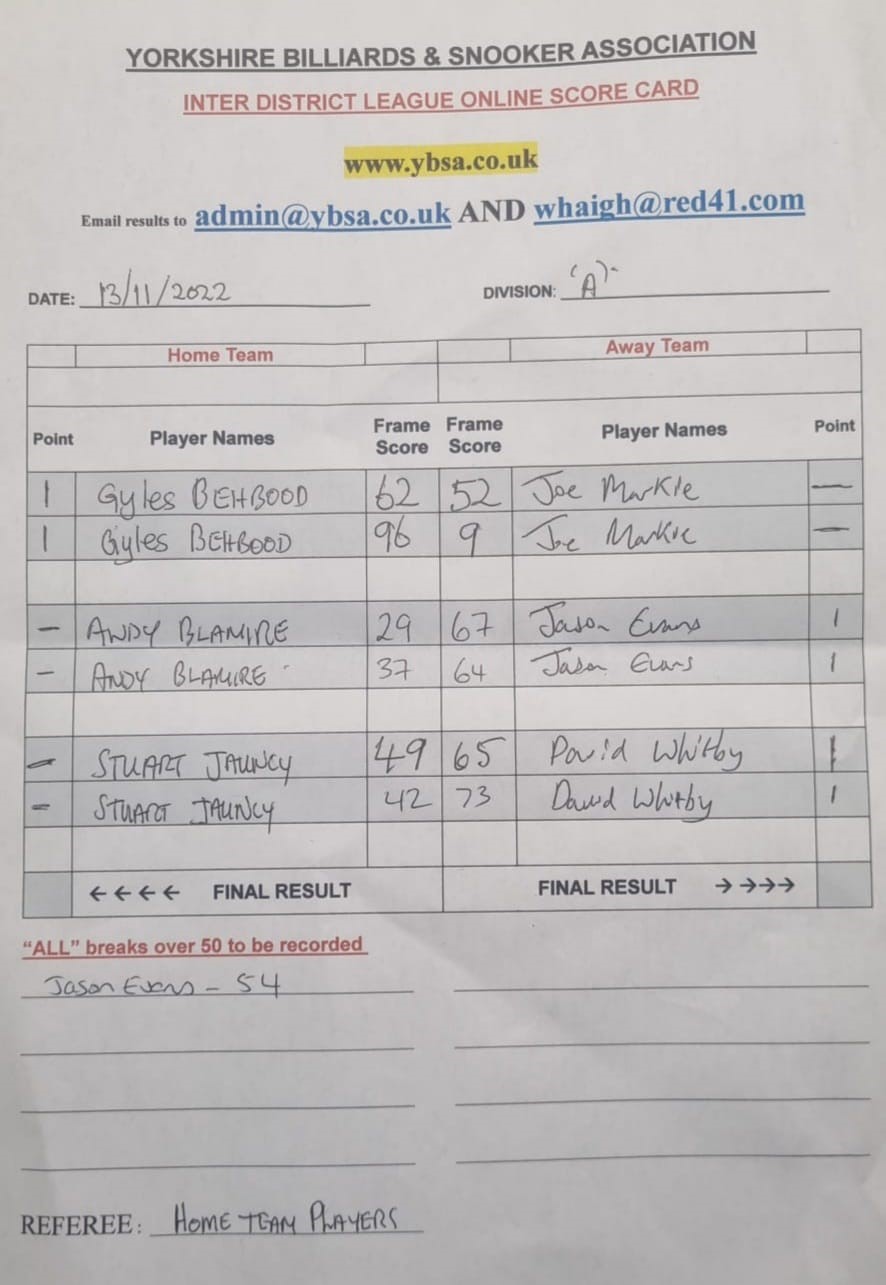 YORKSHIRE BILLIARDS & SNOOKER ASSOCIATION
INTER DISTRICT LEAGUE ONLINE SCORE CARD
www.ybsa.co.uk
Email results to admin@ybsa.co.uk AND whaigh@red41.com
DATE: 13/11/2022 DIVISION: 'A'
Home Team Away Team
Point Player Names Frame Score Frame Score Player Names Point
1 Gyles BEHBOOD 62 52 Joe Markie —
1 Gyles BEHBOOD 96 9 Joe Markie —
— ANDY BLAMIRE 29 67 Jason Evans 1
— ANDY BLAMIRE 37 64 Jason Evans 1
— STUART JAUNCY 49 65 David Whitby 1
— STUART JAUNCY 42 73 David Whitby 1
←←←← FINAL RESULT FINAL RESULT →→→→
"ALL" breaks over 50 to be recorded
Jason Evans - 54
REFEREE: HOME TEAM PLAYERS